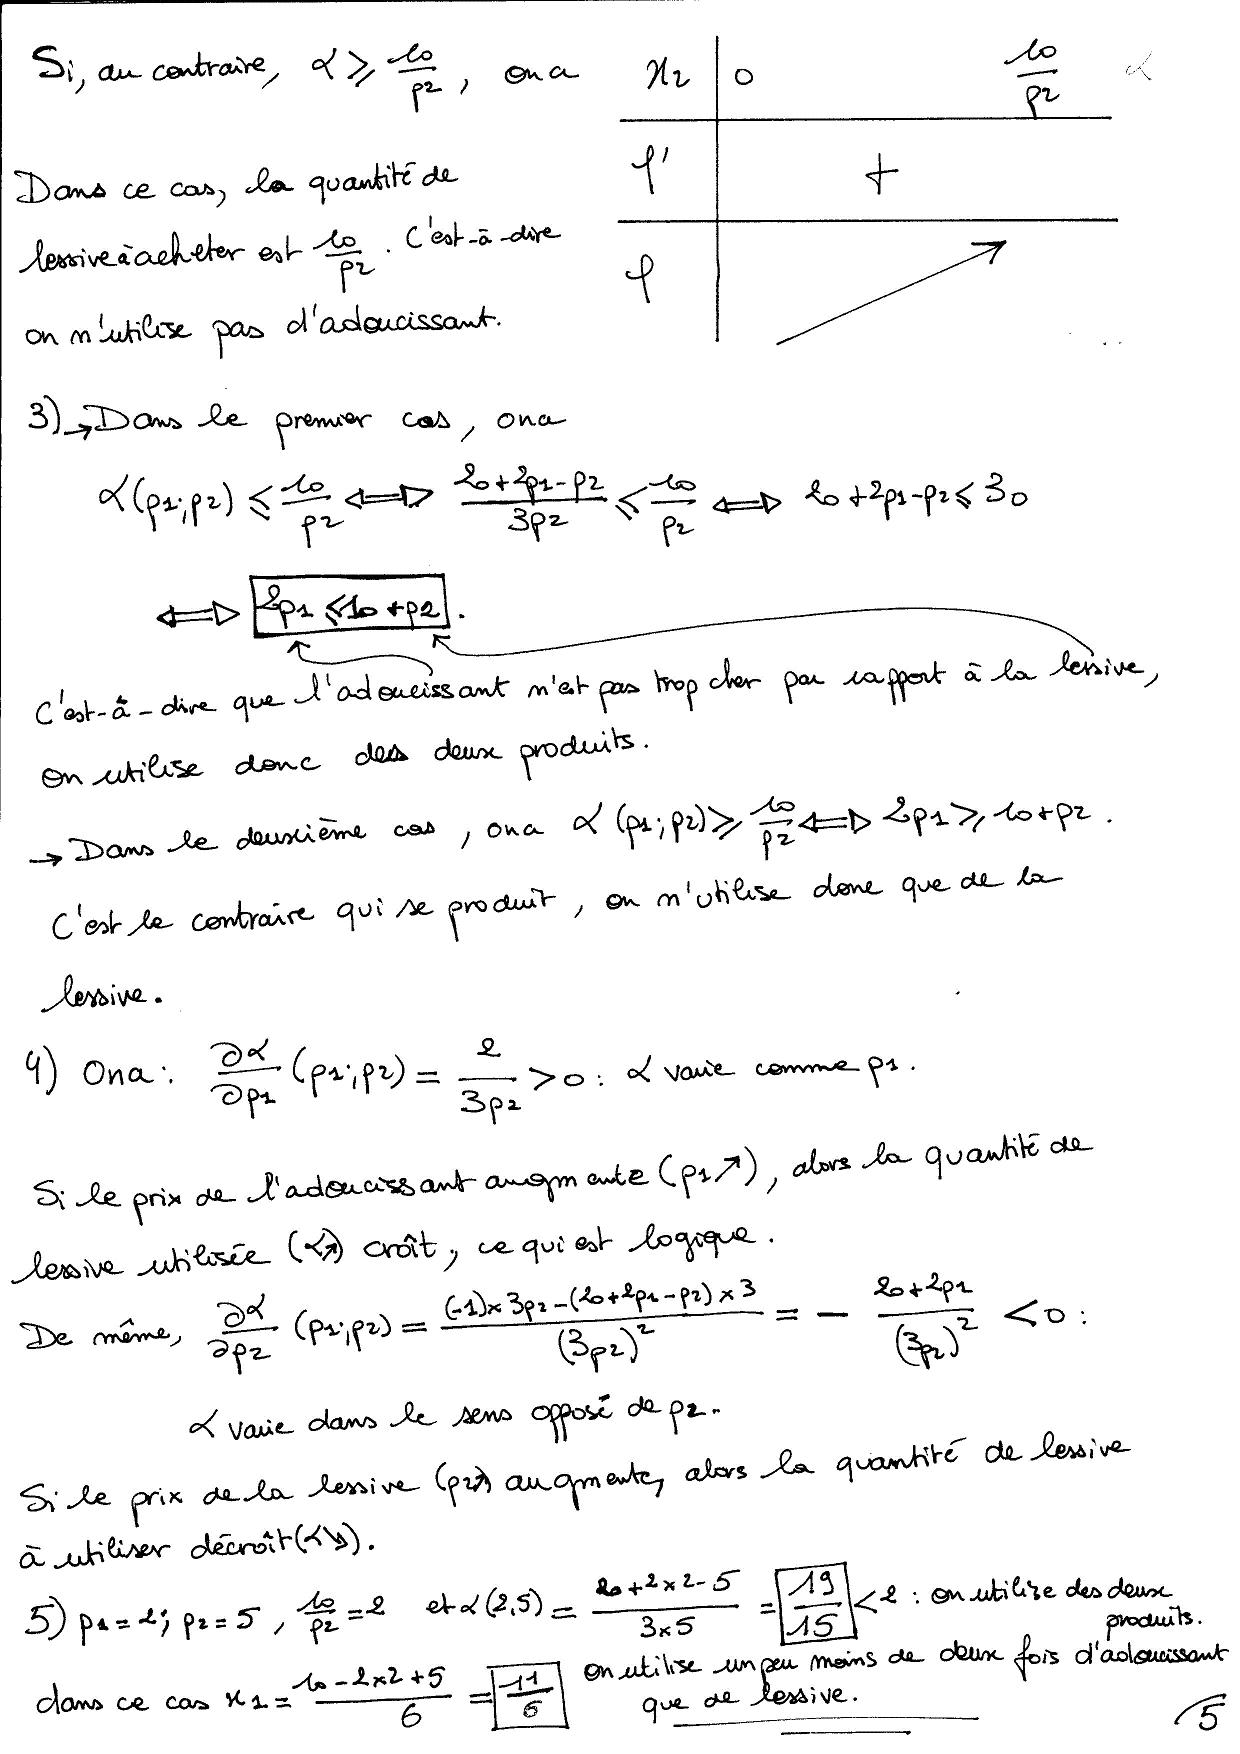 Si, au contraire, α ≥ 10/p2, on a
x2 | 0 10/p2 α
φ' | +
φ | ↗
Dans ce cas, la quantité de
lessive à acheter est 10/p2. C'est-à-dire
on n'utilise pas d'adoucissant.
3) → Dans le premier cas, on a
α(p1;p2) ≤ 10/p2 ⟺ (20+2p1-p2)/(3p2) ≤ 10/p2 ⟺ 20+2p1-p2 ≤ 30
⟺ 2p1 ≤ 10+p2.
C'est-à-dire que l'adoucissant n'est pas trop cher par rapport à la lessive,
on utilise donc des deux produits.
→ Dans le deuxième cas, on a α(p1;p2) ≥ 10/p2 ⟺ 2p1 ≥ 10+p2.
C'est le contraire qui se produit, on n'utilise donc que de la
lessive.
4) On a : ∂α/∂p1 (p1;p2) = 2/(3p2) > 0 : α varie comme p1.
Si le prix de l'adoucissant augmente (p1↗), alors la quantité de
lessive utilisée (α↗) croît, ce qui est logique.
De même, ∂α/∂p2 (p1;p2) = ((-1)×3p2-(20+2p1-p2)×3)/(3p2)² = - (20+2p1)/(3p2)² < 0 :
α varie dans le sens opposé de p2.
Si le prix de la lessive (p2↗) augmente, alors la quantité de lessive
à utiliser décroît (α↘).
5) p1 = 2; p2 = 5, 10/p2 = 2 et α(2,5) = (20+2×2-5)/(3×5) = 19/15 < 2 : on utilize des deux
produits.
dans ce cas x1 = (10-2×2+5)/6 = 11/6 on utilise un peu moins de deux fois d'adoucissant
que de lessive.
5